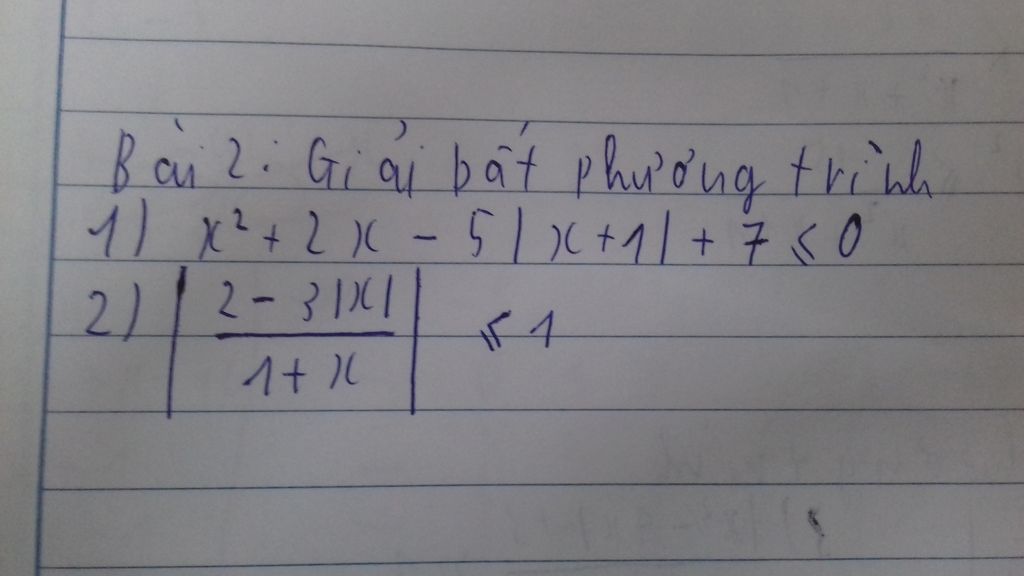 Bài 2: Giải bất phương trình
1) x² + 2x - 5|x+1| + 7 ≤ 0
2) |(2 - 3|x|)/(1 + x)| ≤ 1